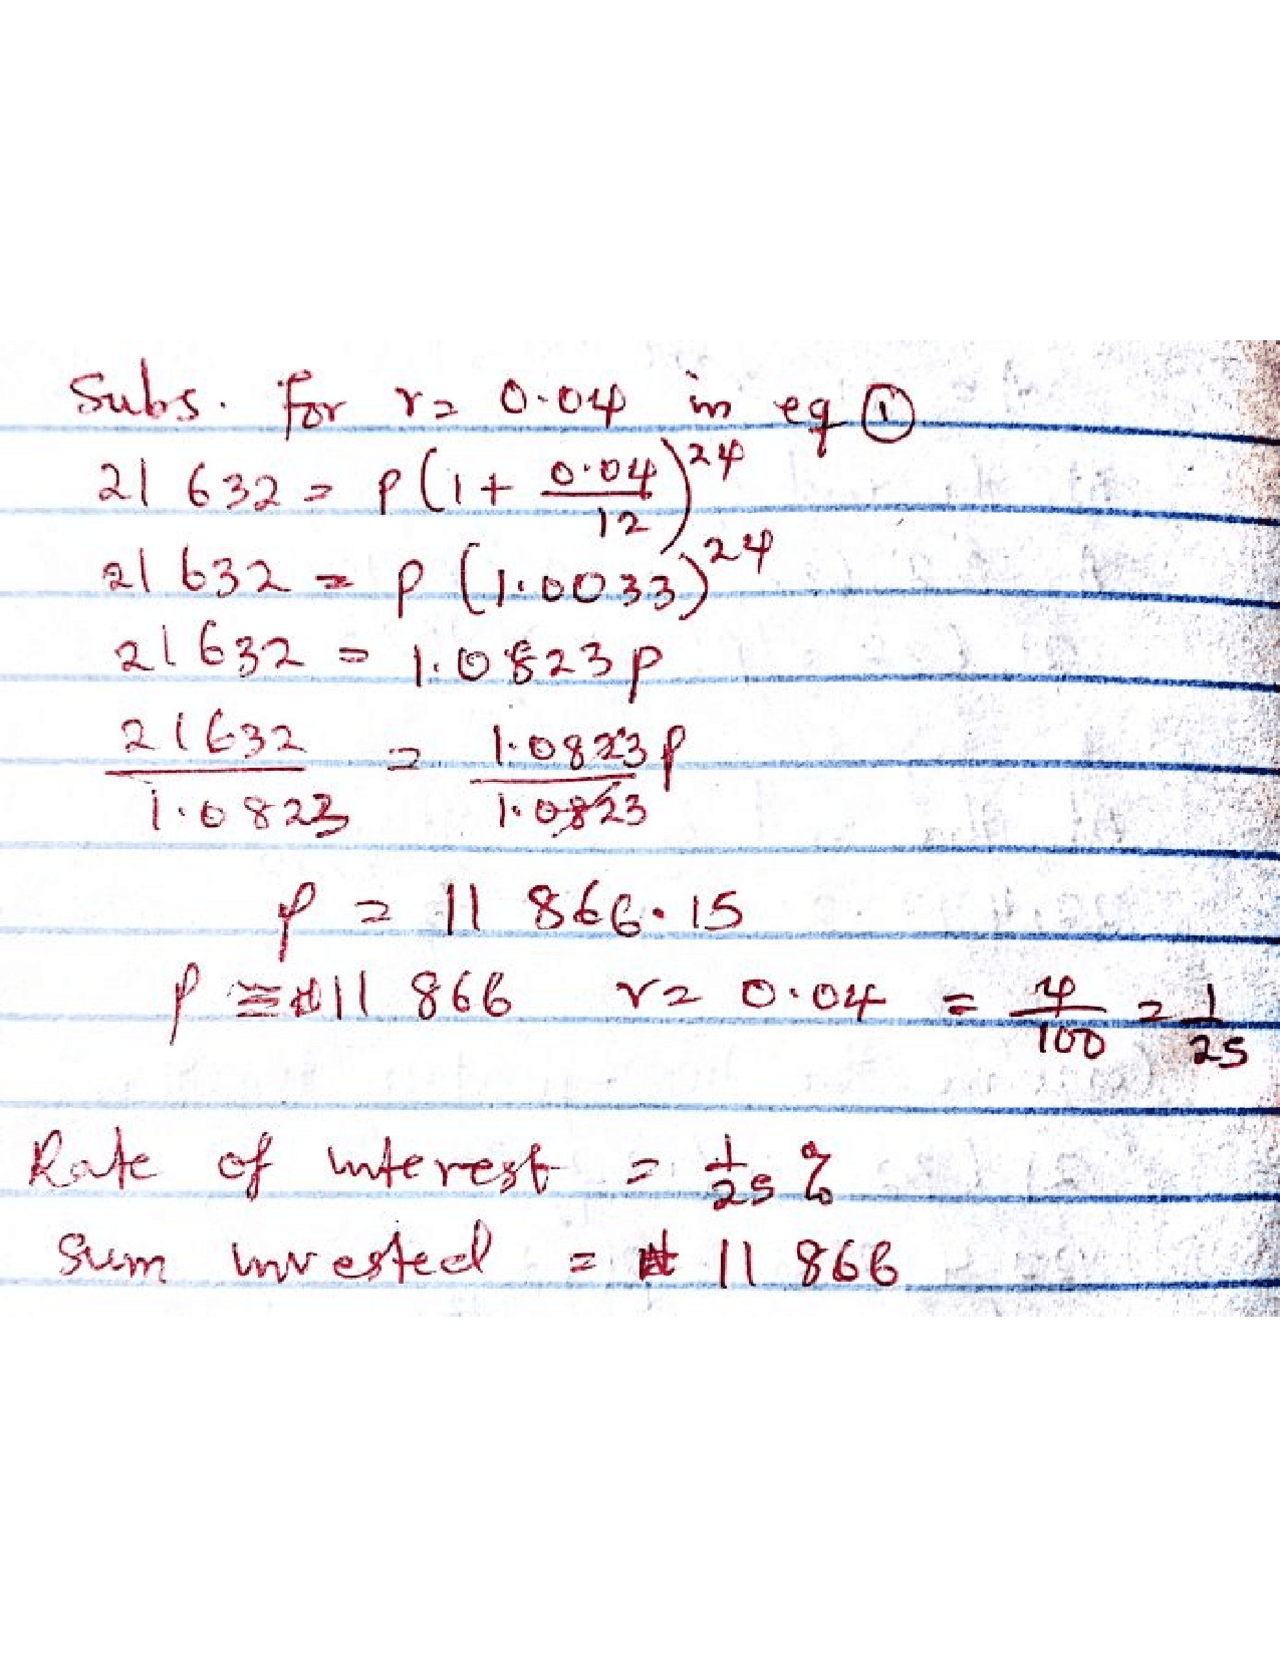 Subs. for r = 0.04 in eq ①
21 632 = P(1 + 0.04/12)^24
21 632 = P (1.0033)^24
21632 = 1.0823P
21632/1.0823 = 1.0823P/1.0823
P = 11 866.15
P ≅ 11 866 r = 0.04 = 4/100 = 1/25
Rate of interest = 1/25 %
Sum invested = 11 866